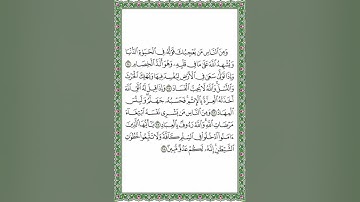 وَمِنَ النَّاسِ مَن يُعْجِبُكَ قَوْلُهُ فِي الْحَيَوٰةِ الدُّنْيَا
وَيُشْهِدُ اللَّهَ عَلَىٰ مَا فِي قَلْبِهِ وَهُوَ أَلَدُّ الْخِصَامِ
وَإِذَا تَوَلَّىٰ سَعَىٰ فِي الْأَرْضِ لِيُفْسِدَ فِيهَا وَيُهْلِكَ الْحَرْثَ
وَالنَّسْلَ وَاللَّهُ لَا يُحِبُّ الْفَسَادَ وَإِذَا قِيلَ لَهُ اتَّقِ اللَّهَ
أَخَذَتْهُ الْعِزَّةُ بِالْإِثْمِ فَحَسْبُهُ جَهَنَّمُ وَلَبِئْسَ
الْمِهَادُ وَمِنَ النَّاسِ مَن يَشْرِي نَفْسَهُ ابْتِغَاءَ
مَرْضَاتِ اللَّهِ وَاللَّهُ رَءُوفٌ بِالْعِبَادِ يَا أَيُّهَا الَّذِينَ
ءَامَنُوا ادْخُلُوا فِي السِّلْمِ كَافَّةً وَلَا تَتَّبِعُوا خُطُوَاتِ
الشَّيْطَانِ إِنَّهُ لَكُمْ عَدُوٌّ مُبِينٌ